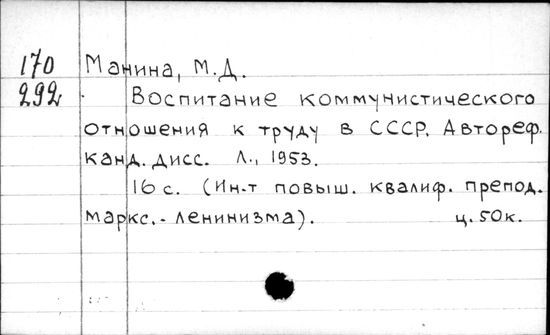 170 Манина, М.Д.
292 Воспитание коммунистического
отношения к труду в СССР. Автореф.
канд. дисс. Л., 1953.
16 с. (Ин-т повыш. квалиф. препод.
маркс.-ленинизма). ц. 50к.